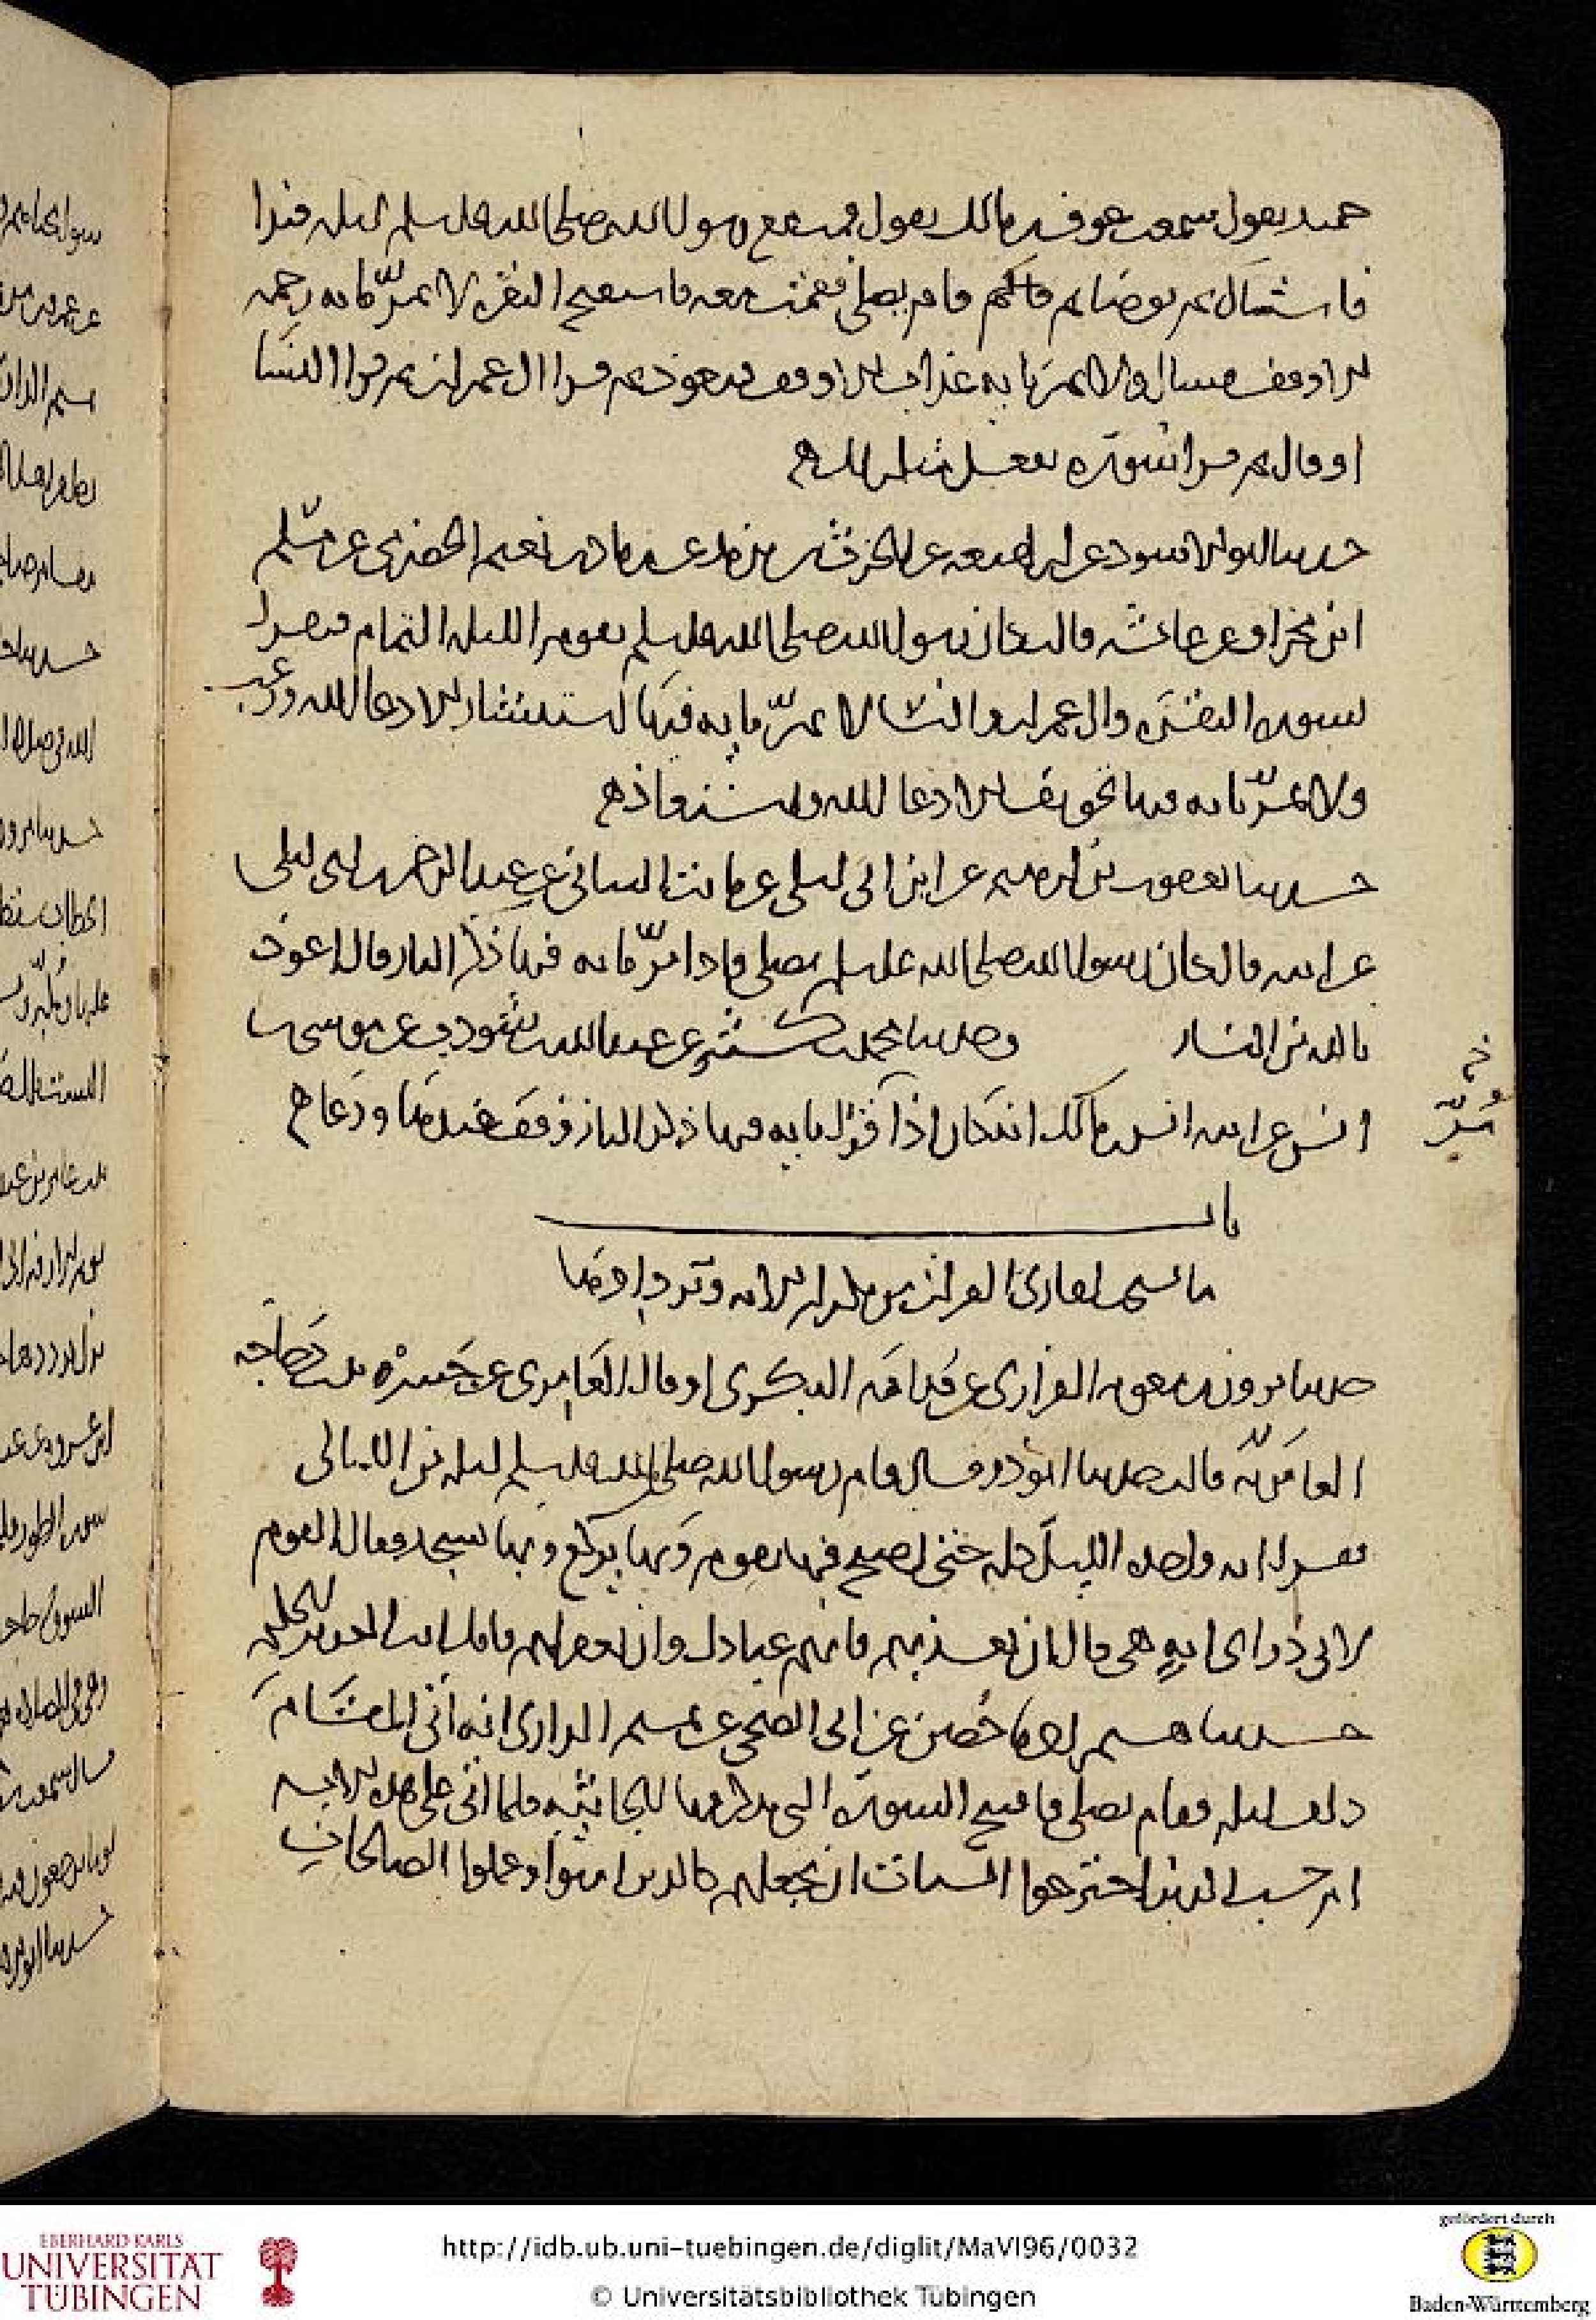 حميد يقول سمعت عوف بن مالك يقول قمت مع رسول الله صلى الله عليه وسلم ليلة فبدا
فاستاك ثم توضا ثم قام يصلي فقمت معه فاستفتح البقرة لا يمر باية رحمة
الا وقف فسال ولا يمر باية عذاب الا وقف يتعوذ ثم قرا ال عمران ثم قرا النسا
او قال ثم قرا سورة يفعل مثل ذلك
حدثنا ابو الاسود عن ابن لهيعة عن الحرث بن يزيد عن زياد بن نعيم الحضرمي عن مسلم
ابن مخراق عن عائشة قالت كان رسول الله صلى الله عليه وسلم يقوم الليلة التمام فيقرا
سورة البقرة وال عمران والنسا لا يمر باية فيها استبشار الا دعا الله ورغب
ولا يمر باية فيها تخويف الا دعا الله واستعاذ
حدثنا يعقوب بن ابرهيم عن ابن ابي ليلى عن ثابت البناني عن عبد الرحمن بن ابي ليلى
عن ابيه قال كان رسول الله صلى الله عليه وسلم يصلي فاذا مر باية فيها ذكر النار قال اعوذ
بالله من النار وحدثنا محمد بن كثير عن عبد الله بن شوذب عن موسى بن
انس عن ابيه انس بن مالك انه كان اذا قرا باية فيها ذكر النار وقف عندها ودعا
مر
باب
ما يستحب لقارئ القران من تكرار الاية وتردادها
حدثنا مروان بن معوية الفزاري عن قدامة البكري او قال العامري عن جسرة بنت دجاجة
العامرية قالت حدثنا ابو ذر قال قام رسول الله صلى الله عليه وسلم ليلة من الليالي
فقرا اية واحدة الليل كله حتى اصبح فيها يقوم وبها يركع وبها يسجد فقال القوم
لابي ذر اي اية هي قال ان تعذبهم فانهم عبادك وان تغفر لهم فانك انت العزيز الحكيم
حدثنا هشيم انا حصين عن ابي الضحى عن تميم الداري انه اتى المقام
ذات ليلة فقام يصلي فافتتح السورة التي يذكر فيها الجاثية فلما اتى على هذه الاية
ام حسب الذين اجترحوا السيات ان نجعلهم كالذين امنوا وعملوا الصالحات
EBERHARD KARLS
UNIVERSITÄT
TÜBINGEN
http://idb.ub.uni-tuebingen.de/diglit/MaVI96/0032
© Universitätsbibliothek Tübingen
gefördert durch
Baden-Württemberg